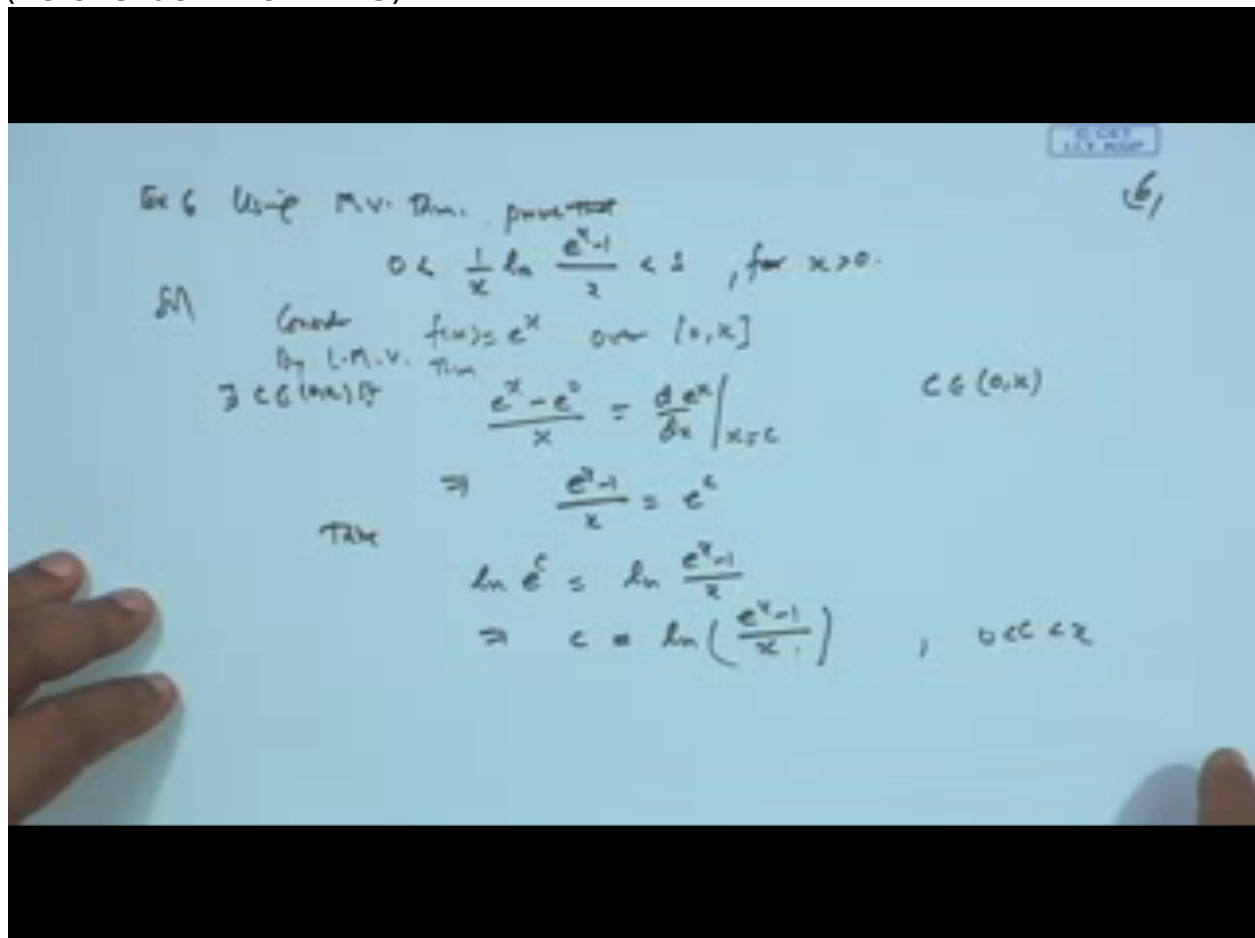 Ex 6 Using M.V. Thm. prove that
0 < 1/x ln (e^x-1)/x < 1 , for x>0.
Sol Consider f(x) = e^x over [0,x]
By L.M.V. Thm
∃ c ∈ (0,x) (e^x - e^0)/x = d e^x/dx |x=c c ∈ (0,x)
⇒ (e^x-1)/x = e^c
Take
ln e^c = ln (e^x-1)/x
⇒ c = ln((e^x-1)/x) , 0<c<x
6